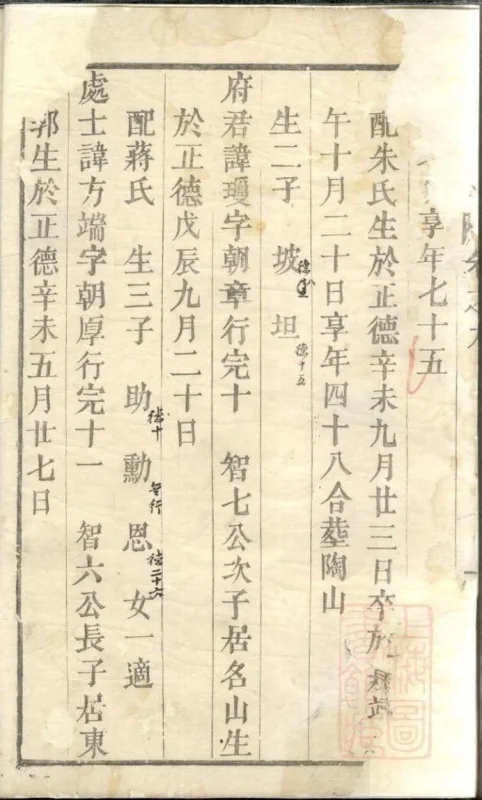 享年七十五
配朱氏生於正德辛未九月廿三日卒於
午十月二十日享年四十八合塟陶山
生二子 坡 坦德十五
府君諱瓊字朝章行完十 智七公次子居名山生
於正德戊辰九月二十日
配蔣氏 生三子 助德十 勳無行 恩德二十六 女一適
處士諱方端字朝厚行完十一 智六公長子居東
郭生於正德辛未五月廿七日